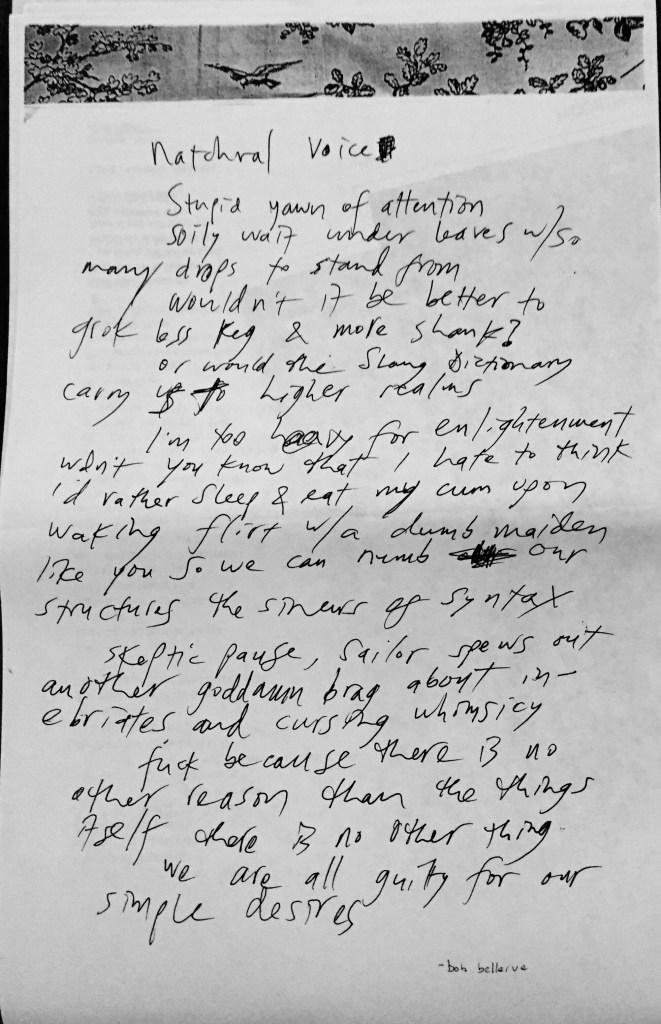 Natchral Voice
Stupid yawn of attention
Soily wait under leaves w/so
many drops to stand from
wouldn't it be better to
grok less keg & more shank?
or would the Slang Dictionary
carry to higher realms
I'm too heavy for enlightenment
wdn't you know that I hate to think
i'd rather sleep & eat my cum upon
waking flirt w/a dumb maiden
like you so we can numb our
structures the sinews of syntax
skeptic pause, Sailor spews out
another goddamn brag about in-
ebriates and cursing whimsicy
fuck because there is no
other reason than the things
itself there is no other thing.
we are all guilty for our
simple desires
-bob bellerue